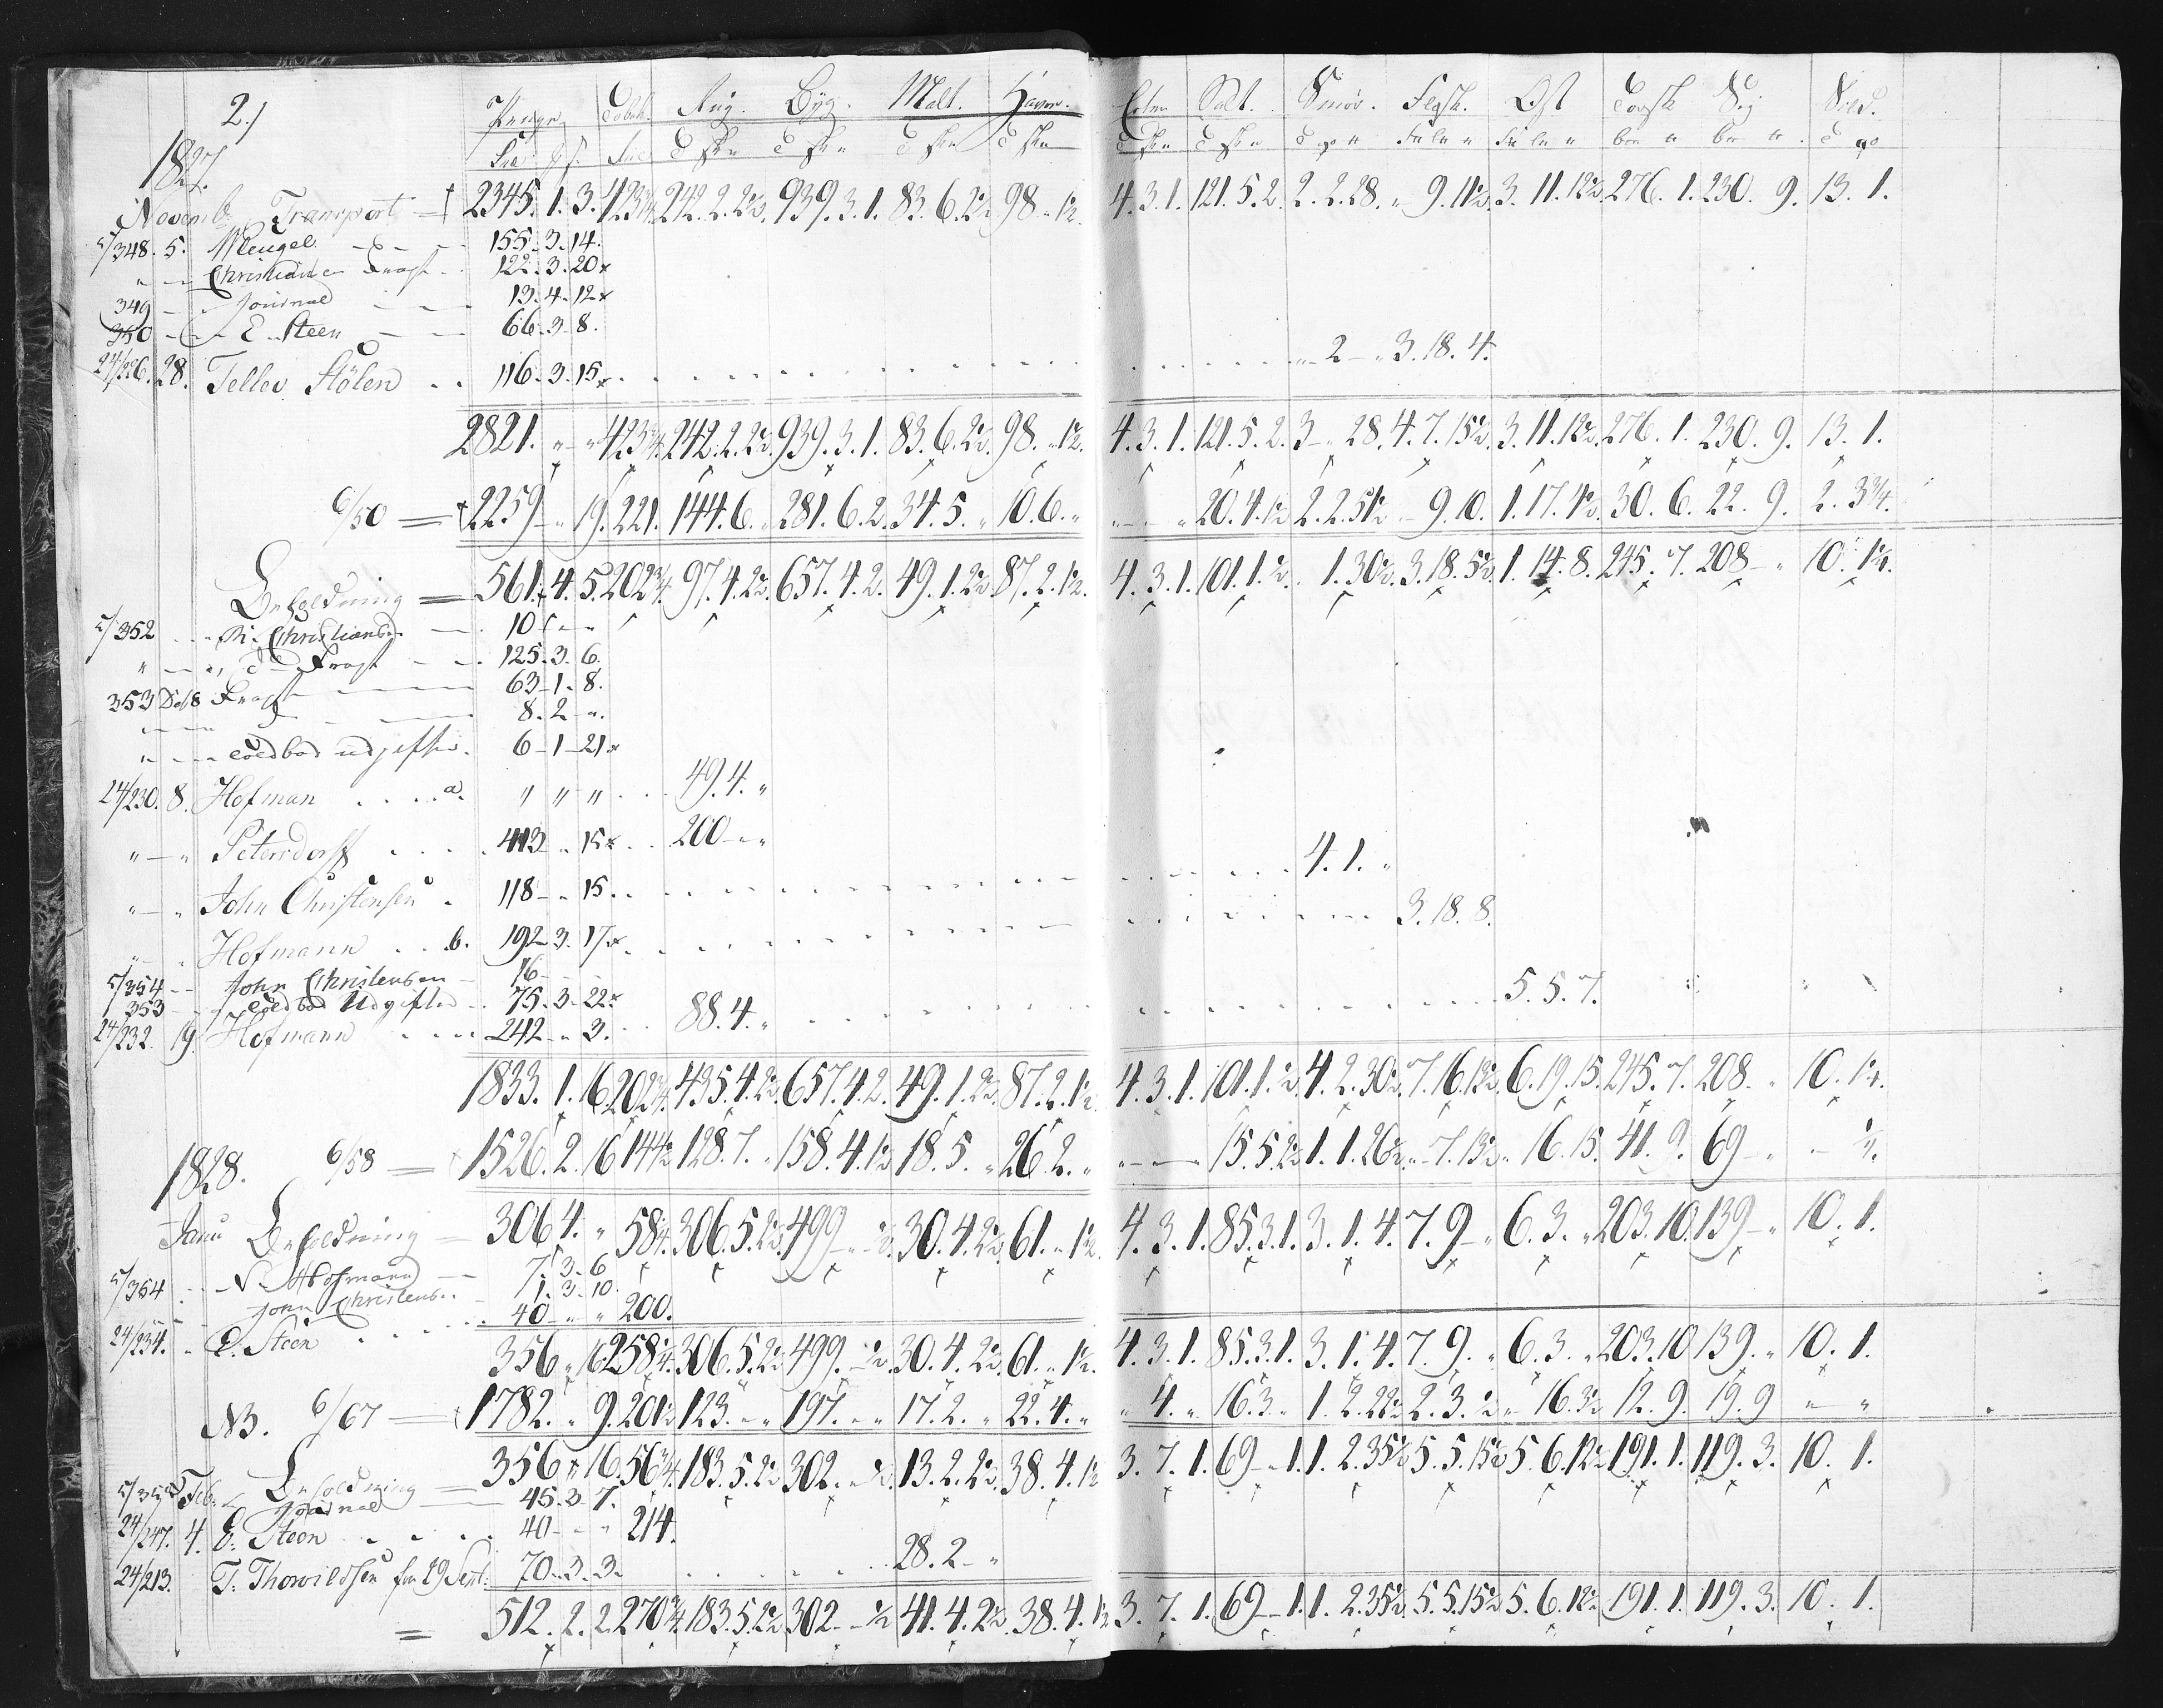 2.)
Penge Tobak. Rug. Byg. Malt. Havre. Erter Salt. Smør. Flesk. Ost Torsk Sej Sild.
1827.
Novemb. Transport 2345. 1. 3. 423¾ 242. 2. 2½. 939. 3. 1. 83. 6. 2½ 98. " 1½. 4. 3. 1. 121. 5. 2. 2. 2. 28. " 9. 11½. 3. 11. 12½. 276. 1. 230. 9. 13. 1.
5/348. 5. Mengel 155. 3. 14.
" Christian Fragt 122. 3. 20
349 Journal 13. 4. 12
350 E. Steen 66. 3. 8.
24/226. 28. Tellev Stölen 116. 3. 15 " 2 " 3. 18. 4.
2821. " " 423¾ 242. 2. 2½. 939. 3. 1. 83. 6. 2½. 98. " 1½. 4. 3. 1. 121. 5. 2. 3 " 28. 4. 7. 15½. 3. 11. 12½. 276. 1. 230. 9. 13. 1.
6/50 = 2259 " 19. 221. 144. 6. " 281. 6. 2. 34. 5. " 10. 6. " " 20. 4. 1½ 2. 2. 51½ " 9. 10. 1. 17. 4½. 30. 6. 22. 9. 2. 3¾.
Beholdning = 561. 4. 5. 202¾. 97. 4. 2½. 657. 4. 2. 49. 1. 2½. 87. 2. 1½. 4. 3. 1. 101. 1. ½. 1. 30½. 3. 18. 5½. 1. 14. 8. 245. 7. 208 " 10. 1¼.
5/352 Christiansen 10 " "
" Fragt 125. 3. 6.
353 8 Fragt 63. 1. 8.
8. 2 ".
" Toldbod udgifter. 6. 1. 21
24/230. 8. Hofman a. " " " 49. 4. "
" " Petersdorff 413 " 15 200 " "
" " John Christensen 118 " 15. 4. 1. "
" " Hofmann b. 192 3. 17 3. 18. 8.
5/354 John Christensen 16
353 Toldbod Udgifter 75. 3. 22
24/232. 19. Hofmann 242 " 3. 88. 4. " 5. 5. 7.
1833. 1. 16. 202¾. 435. 4. 2½. 657. 4. 2. 49. 1. 2½. 87. 2. 1½. 4. 3. 1. 101. 1. ½. 4. 2. 30½. 7. 16. 13½. 6. 19. 15. 245. 7. 208. " 10. 1¼.
1828. 6/58 = 1526. 2. 16 144½ 128. 7. " 158. 4. 1½ 18. 5. " 26. 2. " " 15. 5. 2½ 1. 1. 26½. " 7. 13½. " 16. 15. 41. 9. 69 " " ¼.
Janu Beholdning = 306 4. " 58¼. 306. 5. 2½. 499 " ½. 30. 4. 2½. 61. " 1½. 4. 3. 1. 85. 3. 1. 3. 1. 4. 7. 9 " 6. 3. " 203. 10. 139 " 10. 1.
5/364 Hofmann 7. 3. 6
John Christensen 1. 3. 10.
24/234. E. Steen 40 " " 200.
356 " 16. 258¼. 306. 5. 2½ 499. " ½. 30. 4. 2½. 61. " 1½. 4. 3. 1. 85. 3. 1. 3. 1. 4. 7. 9. " 6. 3. " 203. 10 139. " 10. 1.
NB. 6/67 = 1782. " 9. 201½ 123. " " 197. " " 17. 2. " 22. 4. " " 4. " 16. 3 " 1. 2. 22½ 2. 3. ½ " 16. 3½ 12. 9. 19. 9 " "
Febr. Beholdning = 356 " 16. 56¾. 183. 5. 2½ 302. " ½. 13. 2. 2½. 38. 4. 1½ 3. 7. 1. 69 " 1. 1. 2. 35½ 5. 5. 15½ 5. 6. 12½ 191. 1. 119. 3. 10. 1.
Journal 45. 3. 7.
24/247. 4. E. Steen 40 " " 214.
24/213. T. Thorvildsen fra 29 Sept. 70. 3. 3. 28. 2 "
= 512. 2. 2. 270¾ 183. 5. 2½ 302 " ½ 41. 4. 2½. 38. 4. 1½ 3. 7. 1. 69 " 1. 1. 2. 35½. 5. 5. 15½ 5. 6. 12½. 191. 1. 119. 3. 10. 1.